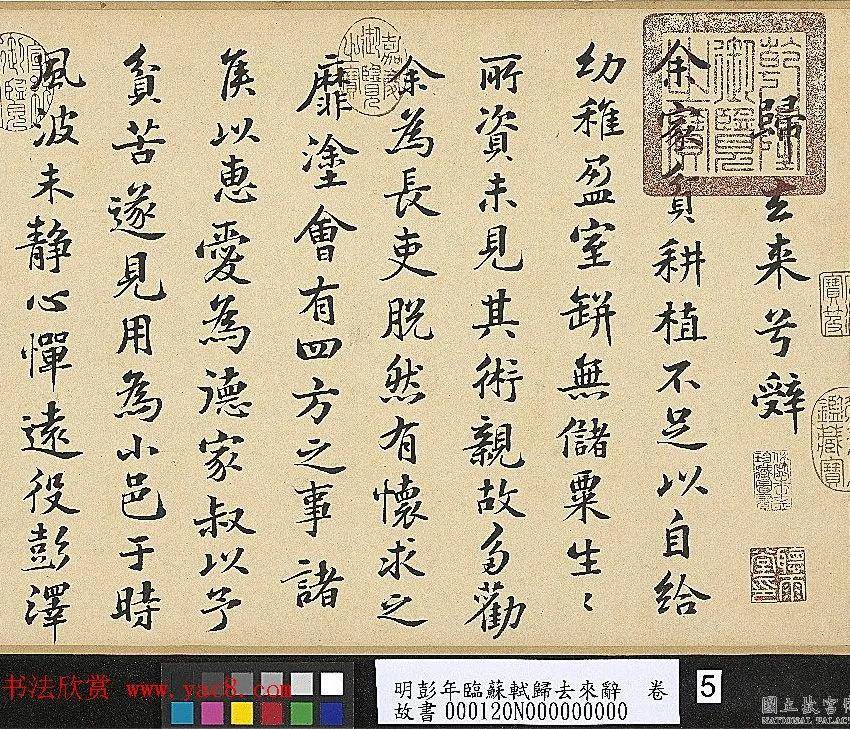 歸去來兮辭
余家貧耕植不足以自給
幼稚盈室缾無儲粟生〻
所資未見其術親故多勸
余為長吏脫然有懷求之
靡塗會有四方之事諸
侯以惠愛為德家叔以予
貧苦遂見用為小邑于時
風波未靜心憚遠役彭澤
乾隆御覽之寶
嘉慶御覽之寶
书法欣赏 www.yac8.com
明彭年臨蘇軾歸去來辭 卷
故書 000120N000000000
5
國立故宮
NATIONAL PALAC